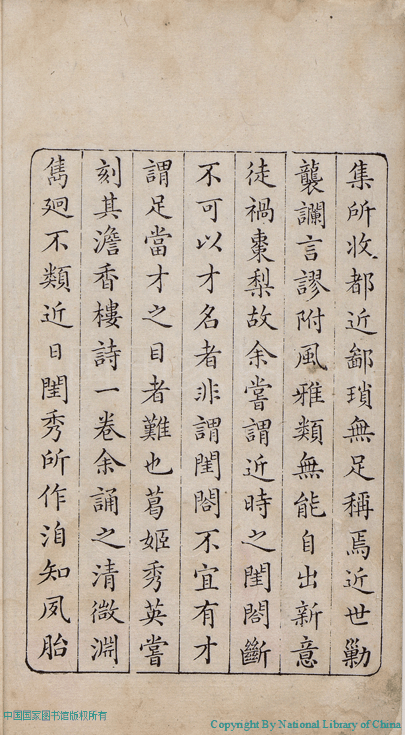 集所收都近鄙瑣無足稱焉近世勦
襲讕言謬附風雅類無能自出新意
徒禍棗梨故余嘗謂近時之閨閤斷
不可以才名者非謂閨閤不宜有才
謂足當才之目者難也葛姬秀英嘗
刻其澹香樓詩一卷余誦之清微淵
雋迥不類近日閨秀所作洎知夙胎
中国国家图书馆版权所有
Copyright By National Library of China